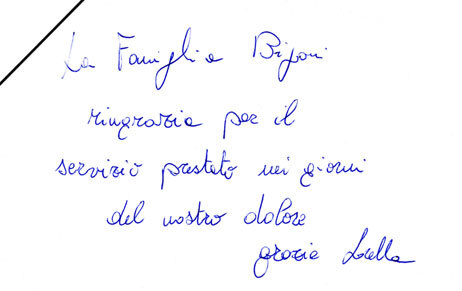 La Famiglia Bigoni
ringrazia per il
servizio prestato nei giorni
del nostro dolore
grazie Lorella